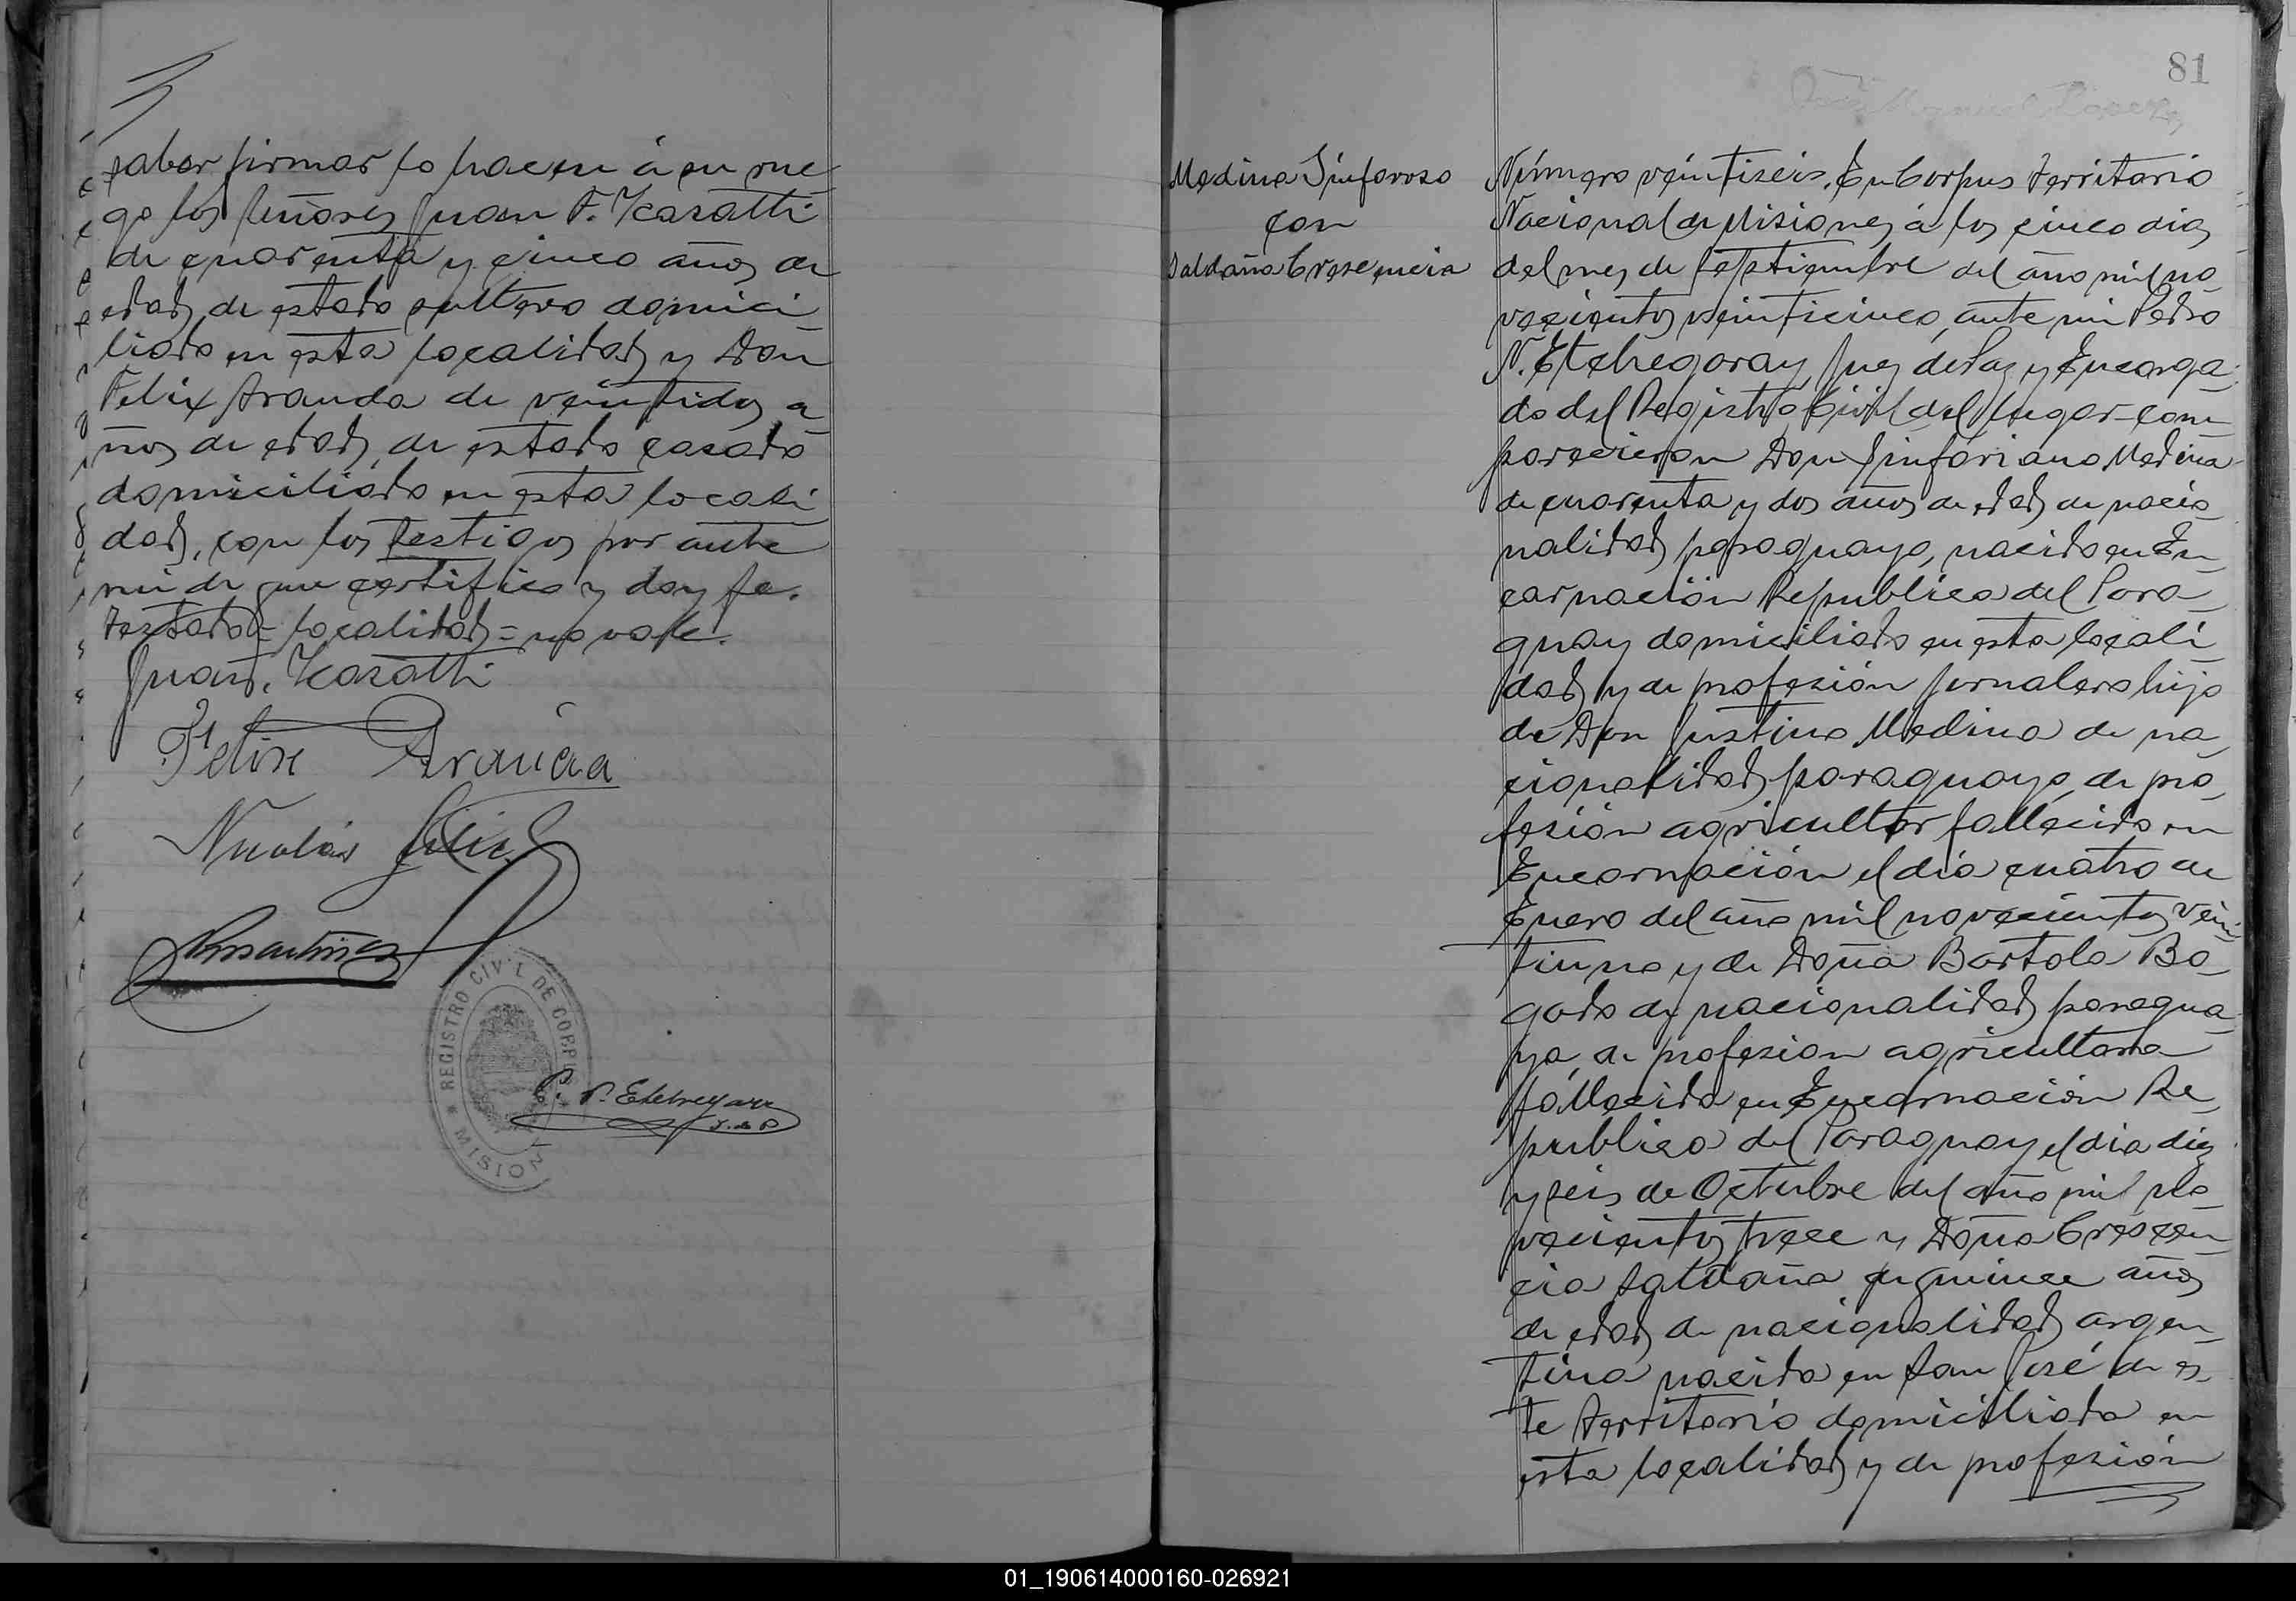 saber firmar lo hacen á su rue
go los señores Juan F. Kasatti
de cuarenta y cinco años de
edad, de estado soltero domici
liado en esta localidad y Don
Felix Aranda de veintidos a
ños de edad, de estado casado
domiciliado en esta locali
dad, con los testigos por ante
mi de que certifico y doy fe.
Testado = localidad = no vale.
Juan F. Kasatti
Felix Aranda
Nicolás
REGISTRO CIVIL DE CORPUS
MISIONES
P. N. Etchegaray
J. de P.
81
Medina Sinforoso
con
Saldaña Cresencia
Número veintiseis. En Corpus Territorio
Nacional de Misiones á los cinco dias
del mes de Septiembre del año mil no
vecientos veinticinco, ante mi Pedro
N. Etchegoray, Juez de Paz y Encarga
do del Registro Civil del lugar com
parecieron Don Sinforiano Medina
de cuarenta y dos años de edad, de nacio
nalidad paraguaya, nacido en En
carnación República del Para
guay domiciliado en esta locali
dad y de profesión jornalero hijo
de Don Justino Medina de na
cionalidad paraguaya, de pro
fesión agricultor fallecido en
Encarnación el día cuatro de
Enero del año mil novecientos vein
tiuno y de Doña Bartola Bo
gado de nacionalidad paragua
ya, de profesion agricultora
fallecida en Encarnación Re
publica del Paraguay el dia diez
y seis de Octubre del año mil no
vecientos trece y Doña Crescen
cia Saldaña de quince años
de edad, de nacionalidad argen
tina nacida en San José de es
te territorio domiciliada en
esta localidad y de profesión
01_190614000160-026921